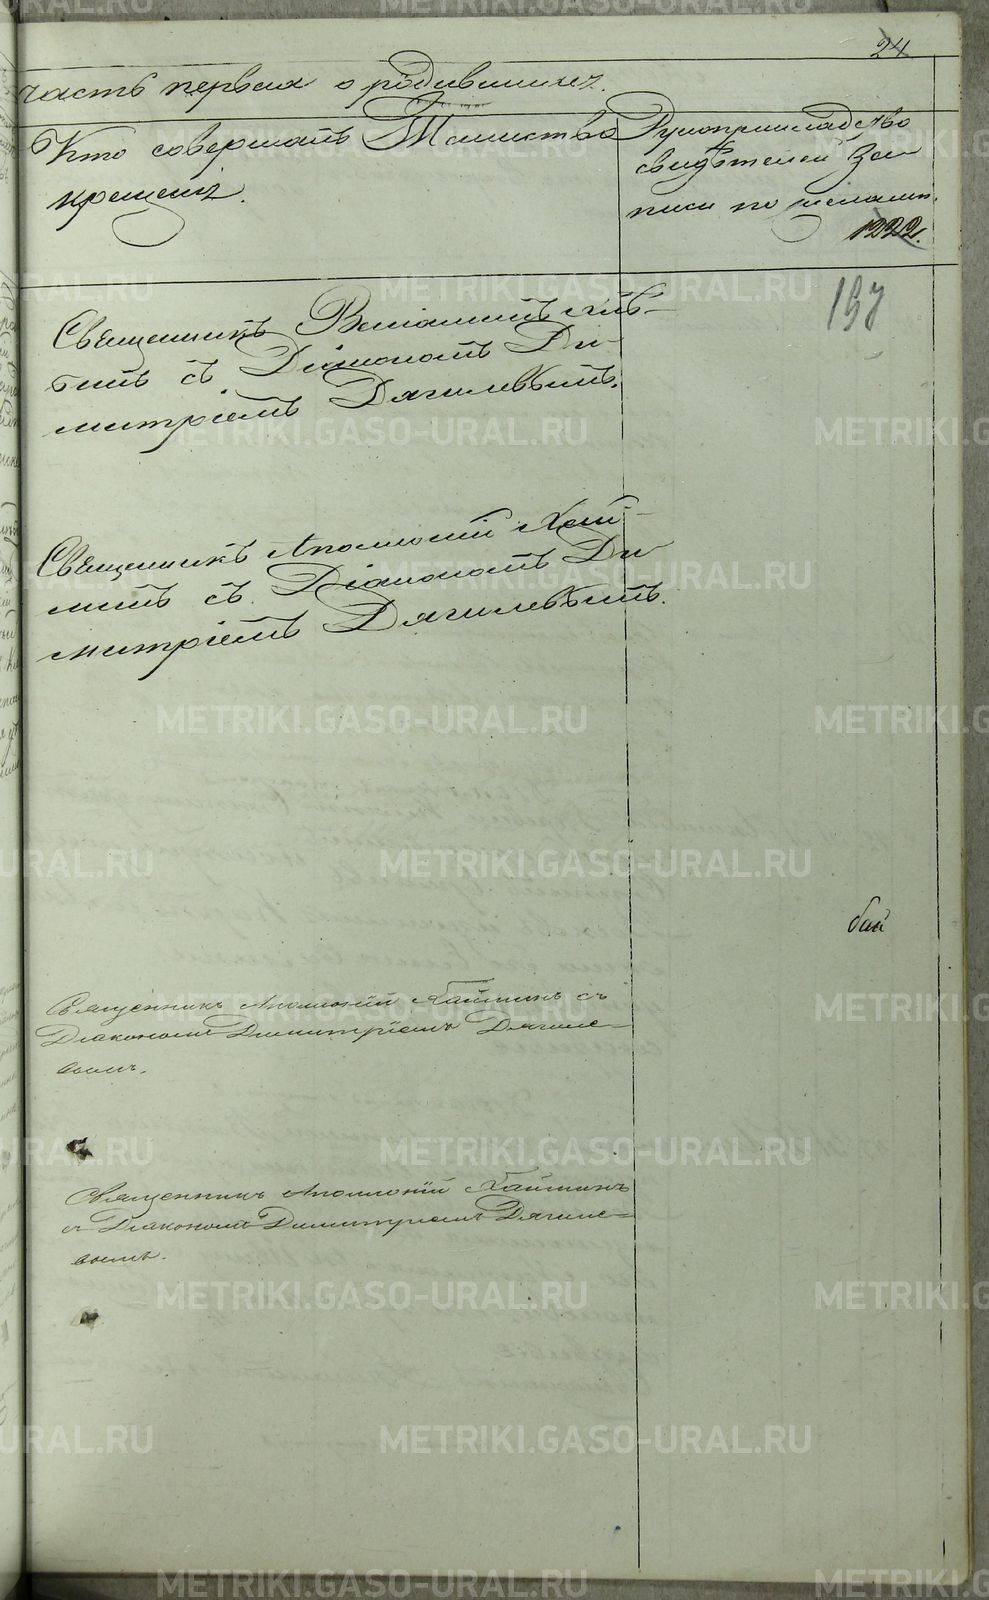 24
часть первая о родившихся.
Кто совершалъ Таинство
крещенія.
Рукоприкладство
свидѣтелей за
писи по желанію.
1222.
197
Священникъ Веніаминъ
съ Діакономъ Ди
митріемъ Дягилевымъ.
Священникъ Аполлоній Хай
минъ съ Діакономъ Ди
митріемъ Дягилевымъ.
бай
Священникъ Аполлоній Хайминъ съ
Діакономъ Димитріемъ Дягиле-
вымъ.
Священникъ Аполлоній Хайминъ
съ Діакономъ Димитріемъ Дягиле-
вымъ.
METRIKI.GASO-URAL.RU